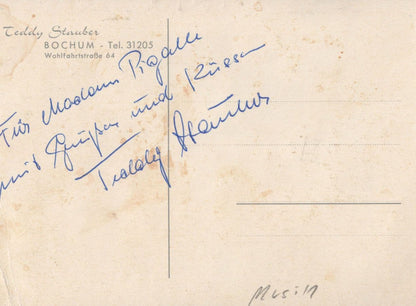 Teddy Stauber
BOCHUM - Tel. 31205
Wohlfahrtstraße 64
Für Madame Pigalle
mit Grüßen und Küssen
Teddy Stauber
Musik